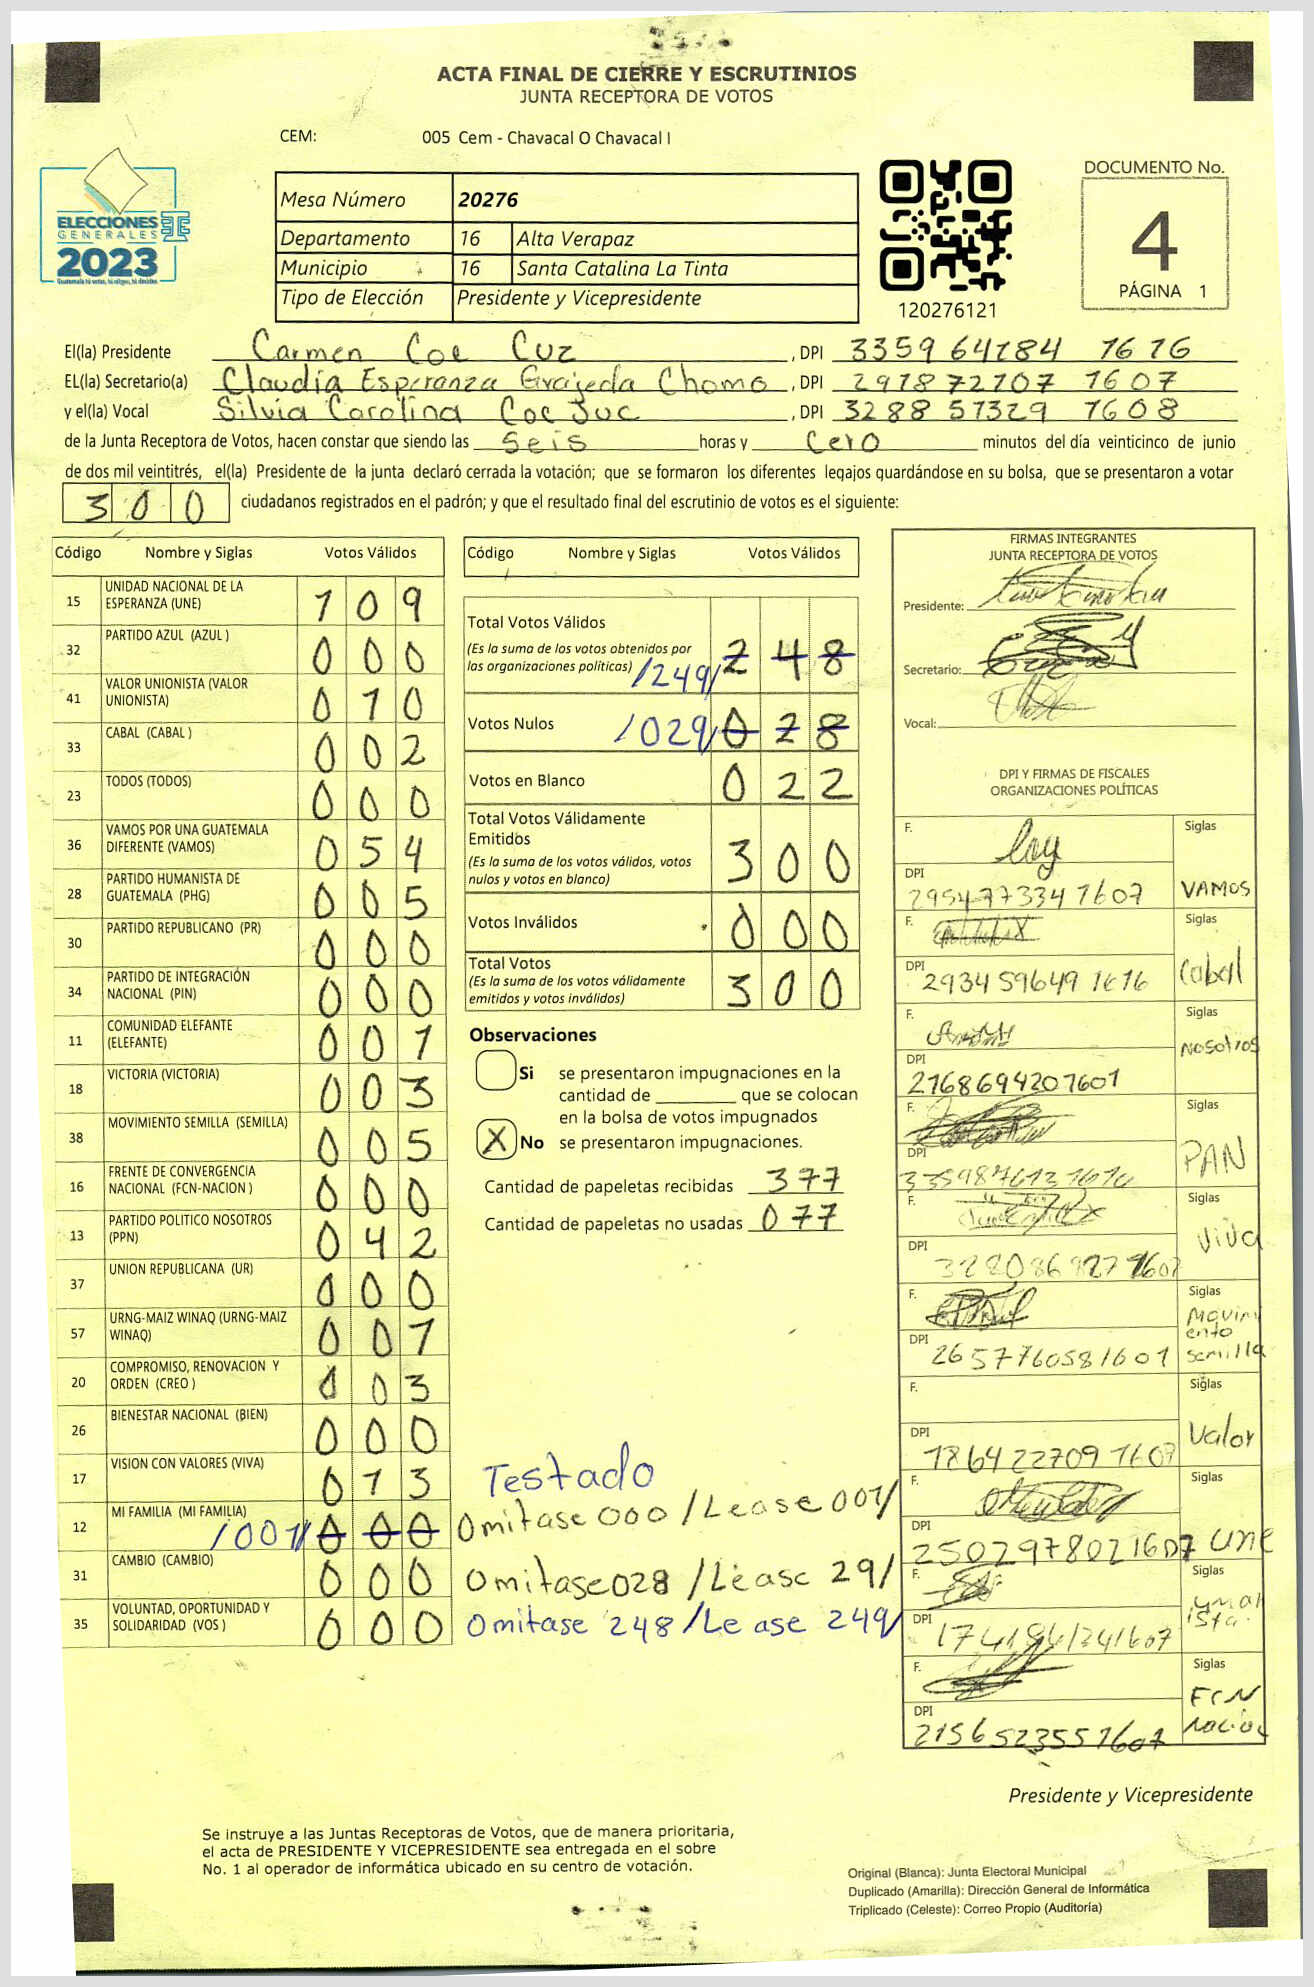 ACTA FINAL DE CIERRE Y ESCRUTINIOS
JUNTA RECEPTORA DE VOTOS
CEM: 005 Cem - Chavacal O Chavacal I
ELECCIONES
GENERALES
2023
Guatemala tú votas, tú eliges, tú decides
Mesa Número 20276
Departamento 16 Alta Verapaz
Municipio 16 Santa Catalina La Tinta
Tipo de Elección Presidente y Vicepresidente
120276121
DOCUMENTO No.
4
PÁGINA 1
El(la) Presidente Carmen Coc Cuz , DPI 3359 64184 1616
EL(la) Secretario(a) Claudia Esperanza Grajeda Chomo , DPI 291872107 1607
y el(la) Vocal Silvia Carolina Coc Juc , DPI 3288 57329 1608
de la Junta Receptora de Votos, hacen constar que siendo las seis horas y cero minutos del día veinticinco de junio
de dos mil veintitrés, el(la) Presidente de la junta declaró cerrada la votación; que se formaron los diferentes legajos guardándose en su bolsa, que se presentaron a votar
300 ciudadanos registrados en el padrón; y que el resultado final del escrutinio de votos es el siguiente:
Código Nombre y Siglas Votos Válidos
15 UNIDAD NACIONAL DE LA ESPERANZA (UNE) 109
32 PARTIDO AZUL (AZUL ) 000
41 VALOR UNIONISTA (VALOR UNIONISTA) 010
33 CABAL (CABAL ) 002
23 TODOS (TODOS) 000
36 VAMOS POR UNA GUATEMALA DIFERENTE (VAMOS) 054
28 PARTIDO HUMANISTA DE GUATEMALA (PHG) 005
30 PARTIDO REPUBLICANO (PR) 000
34 PARTIDO DE INTEGRACIÓN NACIONAL (PIN) 000
11 COMUNIDAD ELEFANTE (ELEFANTE) 001
18 VICTORIA (VICTORIA) 003
38 MOVIMIENTO SEMILLA (SEMILLA) 005
16 FRENTE DE CONVERGENCIA NACIONAL (FCN-NACION ) 000
13 PARTIDO POLITICO NOSOTROS (PPN) 042
37 UNION REPUBLICANA (UR) 000
57 URNG-MAIZ WINAQ (URNG-MAIZ WINAQ) 001
20 COMPROMISO, RENOVACION Y ORDEN (CREO ) 003
26 BIENESTAR NACIONAL (BIEN) 000
17 VISION CON VALORES (VIVA) 013
12 MI FAMILIA (MI FAMILIA) /001/ 000
31 CAMBIO (CAMBIO) 000
35 VOLUNTAD, OPORTUNIDAD Y SOLIDARIDAD (VOS ) 000
Código Nombre y Siglas Votos Válidos
Total Votos Válidos
(Es la suma de los votos obtenidos por
las organizaciones políticas) /249/ 248
Votos Nulos /029/ 028
Votos en Blanco 022
Total Votos Válidamente
Emitidos
(Es la suma de los votos válidos, votos
nulos y votos en blanco) 300
Votos Inválidos 000
Total Votos
(Es la suma de los votos válidamente
emitidos y votos inválidos) 300
Observaciones
Si se presentaron impugnaciones en la
cantidad de ________ que se colocan
en la bolsa de votos impugnados
X No se presentaron impugnaciones.
Cantidad de papeletas recibidas 377
Cantidad de papeletas no usadas 077
Testado
Omitase 000 /Lease 001/
Omitase 028 /Lease 29/
Omitase 248 /Lease 249/
FIRMAS INTEGRANTES
JUNTA RECEPTORA DE VOTOS
Presidente:
Secretario:
Vocal:
DPI Y FIRMAS DE FISCALES
ORGANIZACIONES POLÍTICAS
F. Siglas
DPI 295477334 1607 VAMOS
F. Siglas
DPI 293459649 1616 Cabal
F. Siglas
DPI 2168694201601 NOSOTROS
F. Siglas
DPI PAN
F. Siglas
DPI viva
F. Siglas
DPI 2657760581601 Movimi
ento
semilla
F. Siglas
DPI 186422709 1607 Valor
F. Siglas
DPI 2502978021607 une
F. Siglas
DPI
F. Siglas
DPI 2156523551607 FCN
Nacion
Presidente y Vicepresidente
Se instruye a las Juntas Receptoras de Votos, que de manera prioritaria,
el acta de PRESIDENTE Y VICEPRESIDENTE sea entregada en el sobre
No. 1 al operador de informática ubicado en su centro de votación.
Original (Blanca): Junta Electoral Municipal
Duplicado (Amarilla): Dirección General de Informática
Triplicado (Celeste): Correo Propio (Auditoría)